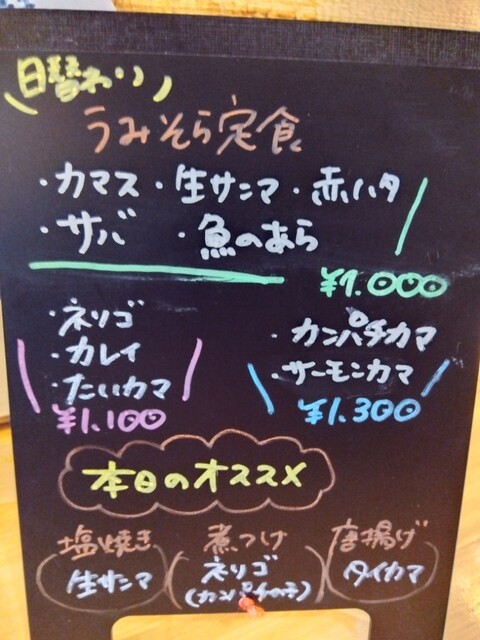 日替わり
うみそら定食
・カマス・生サンマ・赤ハタ
・サバ ・魚のあら
¥1.000
・ネリゴ
・カレイ
・たいカマ
¥1.100
・カンパチカマ
・サーモンカマ
¥1.300
本日のオススメ
塩焼き
生サンマ
煮つけ
ネリゴ
(カンパチの子)
唐揚げ
タイカマ